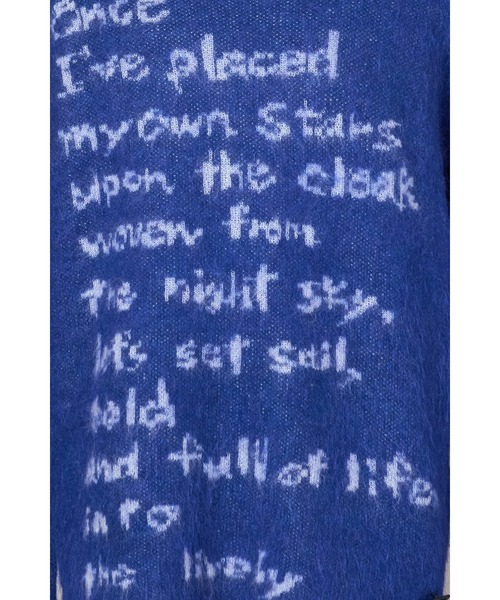 Once
I've placed
my own stars
upon the cloak
woven from
the night sky,
let's set sail,
bold
and full of life
into
the lively